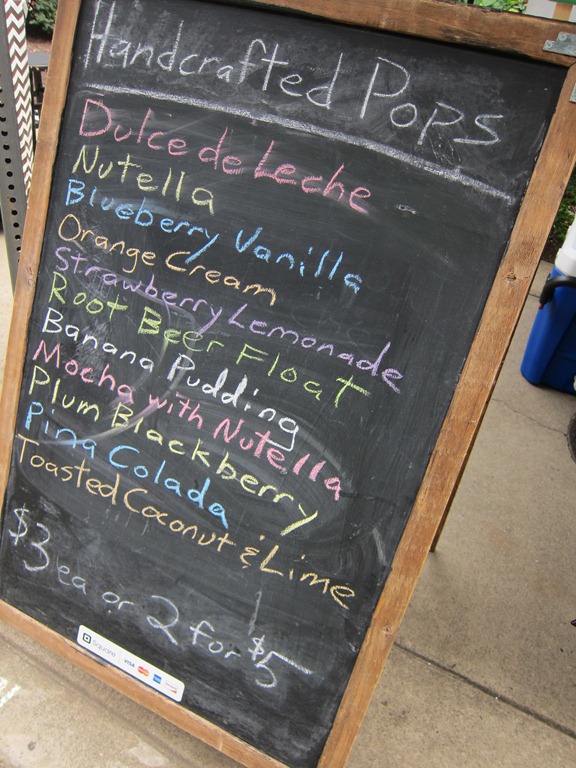 Handcrafted Pops
Dulce de Leche
Nutella
Blueberry Vanilla
Orange Cream
Strawberry Lemonade
Root Beer Float
Banana Pudding
Mocha with Nutella
Plum Blackberry
Pina Colada
Toasted Coconut & Lime
$3 ea or 2 for $5
Square VISA